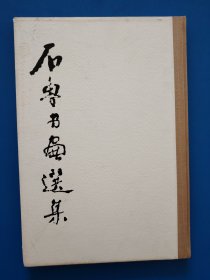 石鲁书画選集